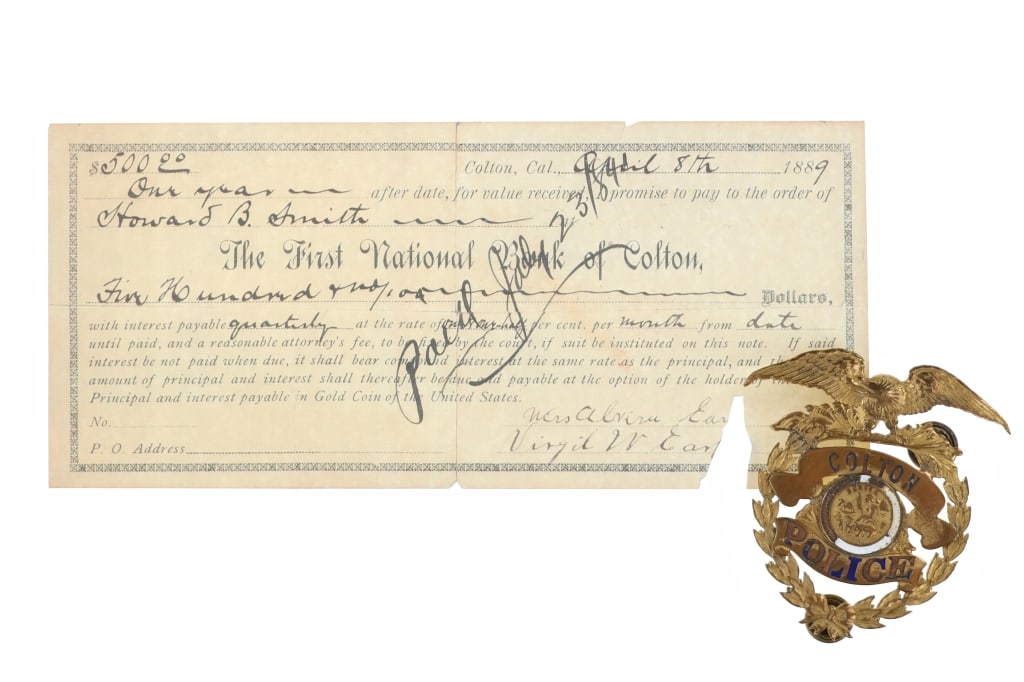 $500 00 Colton, Cal., April 8th 1889
One year after date, for value received, I promise to pay to the order of
Howard B. Smith
The First National Bank of Colton,
Five Hundred & no/00 Dollars,
with interest payable quarterly at the rate of per cent. per month from date
until paid, and a reasonable attorney's fee, to be fixed by the court, if suit be instituted on this note. If said
interest be not paid when due, it shall bear compound interest at the same rate as the principal, and the
amount of principal and interest shall thereafter be due and payable at the option of the holder of
Principal and interest payable in Gold Coin of the United States.
No.
P. O. Address
Mrs Ear
Virgil W Earp
Paid
COLTON
POLICE